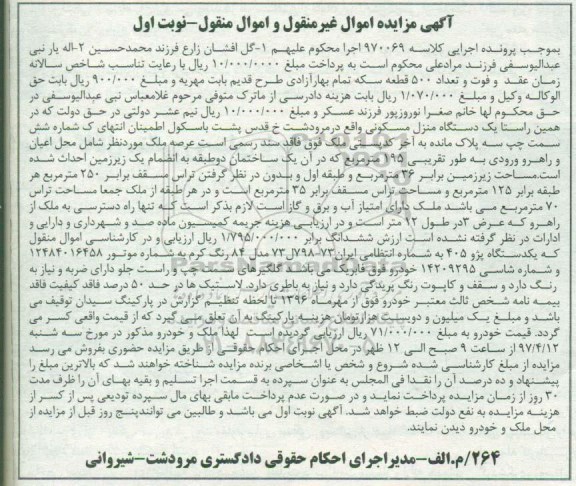 آگهی مزایده اموال غیرمنقول و اموال منقول-نوبت اول
بموجب پرونده اجرایی کلاسه ۹۷۰۰۶۹ اجرا محکوم علیهم ۱-گل افشان زارع فرزند محمدحسین ۲-اله یار نبی
عبدالیوسفی فرزند مرادعلی محکوم است به پرداخت مبلغ ۱۰/۰۰۰/۰۰۰ ریال با رعایت تناسب شاخص سالانه
زمان عقد و فوت و تعداد ۵۰۰ قطعه سکه تمام بهارآزادی طرح قدیم بابت مهریه و مبلغ ۹۰۰/۰۰۰ ریال بابت حق
الوکاله وکیل و مبلغ ۱/۰۷۰/۰۰۰ ریال بابت هزینه دادرسی از ماترک متوفی مرحوم غلامعباس نبی عبدالیوسفی در
حق محکوم لها خانم صغرا نوروزپور فرزند عسکر و مبلغ ۱۰/۰۰۰/۰۰۰ ریال نیم عشر دولتی در حق دولت که در
همین راستا یک دستگاه منزل مسکونی واقع درمرودشت خ قدس پشت باسکول اطمینان انتهای ک شماره شش
سمت چپ سه پلاک مانده به آخر که ملک فوق فاقد سند رسمی است عرصه ملک موردنظر شامل محل اعیان
و راهرو ورودی به طور تقریبی ۱۹۵ مترمربع که در آن یک ساختمان دوطبقه به انضمام یک زیرزمین احداث شده
است.مساحت زیرزمین برابر ۳۶ مترمربع و طبقه اول و بدون در نظر گرفتن تراس مسقف برابر ۲۵۰ مترمربع هر
طبقه برابر ۱۲۵ مترمربع و مساحت تراس مسقف برابر ۳۵ مترمربع است و در هر طبقه از ملک جمعا مساحت تراس
۷۰ مترمربع می باشد ملک دارای امتیاز آب و برق و گاز است لازم بذکر است که تنها راه دسترسی به ملک از
راهرو که عرض ۳در طول ۱۲ متر است و در ارزیابی هزینه جریمه کمیسیون ماده صد و شهرداری و دارایی و
ادارات در نظر گرفته نشده است ارزش ششدانگ برابر ۱/۷۹۵/۰۰۰/۰۰۰ ریال ارزیابی و در کارشناسی اموال منقول
که یکدستگاه پژو ۴۰۵ به شماره انتظامی ایران۷۳-۷۹۸ل۷۳ مدل ۸۴ رنگ کرم به شماره موتور ۱۲۴۸۴۰۱۶۴۵۸
و شماره شاسی ۱۴۲۰۹۲۹۵ خودرو فوق فابریک می باشد، گلگیرهای سمت چپ و راست جلو دارای ضربه و نیاز به
رنگ دارد و سقف و کاپوت رنگ پریدگی دارد و نیاز به باطری دارد. لاستیک ها در حد ۵۰ درصد فاقد کیفیت فاقد
بیمه نامه شخص ثالث معتبر خودرو فوق از مهرماه ۱۳۹۶ تا لحظه تنظیم گزارش در پارکینگ سیدان توقیف می
باشد و مبلغ یک میلیون و دویست هزارتومان هزینه پارکینگ به آن تعلق می گیرد که از قیمت واقعی کسر می
گردد. قیمت خودرو به مبلغ ۷۱/۰۰۰/۰۰۰ ریال ارزیابی گردیده است لهذا ملک و خودرو مذکور در مورخ سه شنبه
۹۷/۴/۱۲ از ساعت ۹ صبح الی ۱۲ ظهر در محل اجرای احکام حقوقی از طریق مزایده حضوری بفروش می رسد
مزایده از مبلغ کارشناسی شده شروع و شخص یا اشخاصی برنده مزایده شناخته خواهند شد که بالاترین مبلغ را
پیشنهاد و ده درصد آن را نقدا فی المجلس به عنوان سپرده به قسمت اجرا تسلیم و بقیه بهای آن را ظرف مدت
۳۰ روز از زمان مزایده پرداخت نماید و در صورت عدم پرداخت مابقی بهای مال سپرده تودیعی پس از کسر از
هزینه مزایده به نفع دولت ضبط خواهد شد. آگهی نوبت اول می باشد و طالبین می توانندپنج روز قبل از مزایده از
محل ملک و خودرو دیدن نمایند.
۲۶۴/م.الف-مدیراجرای احکام حقوقی دادگستری مرودشت-شیروانی